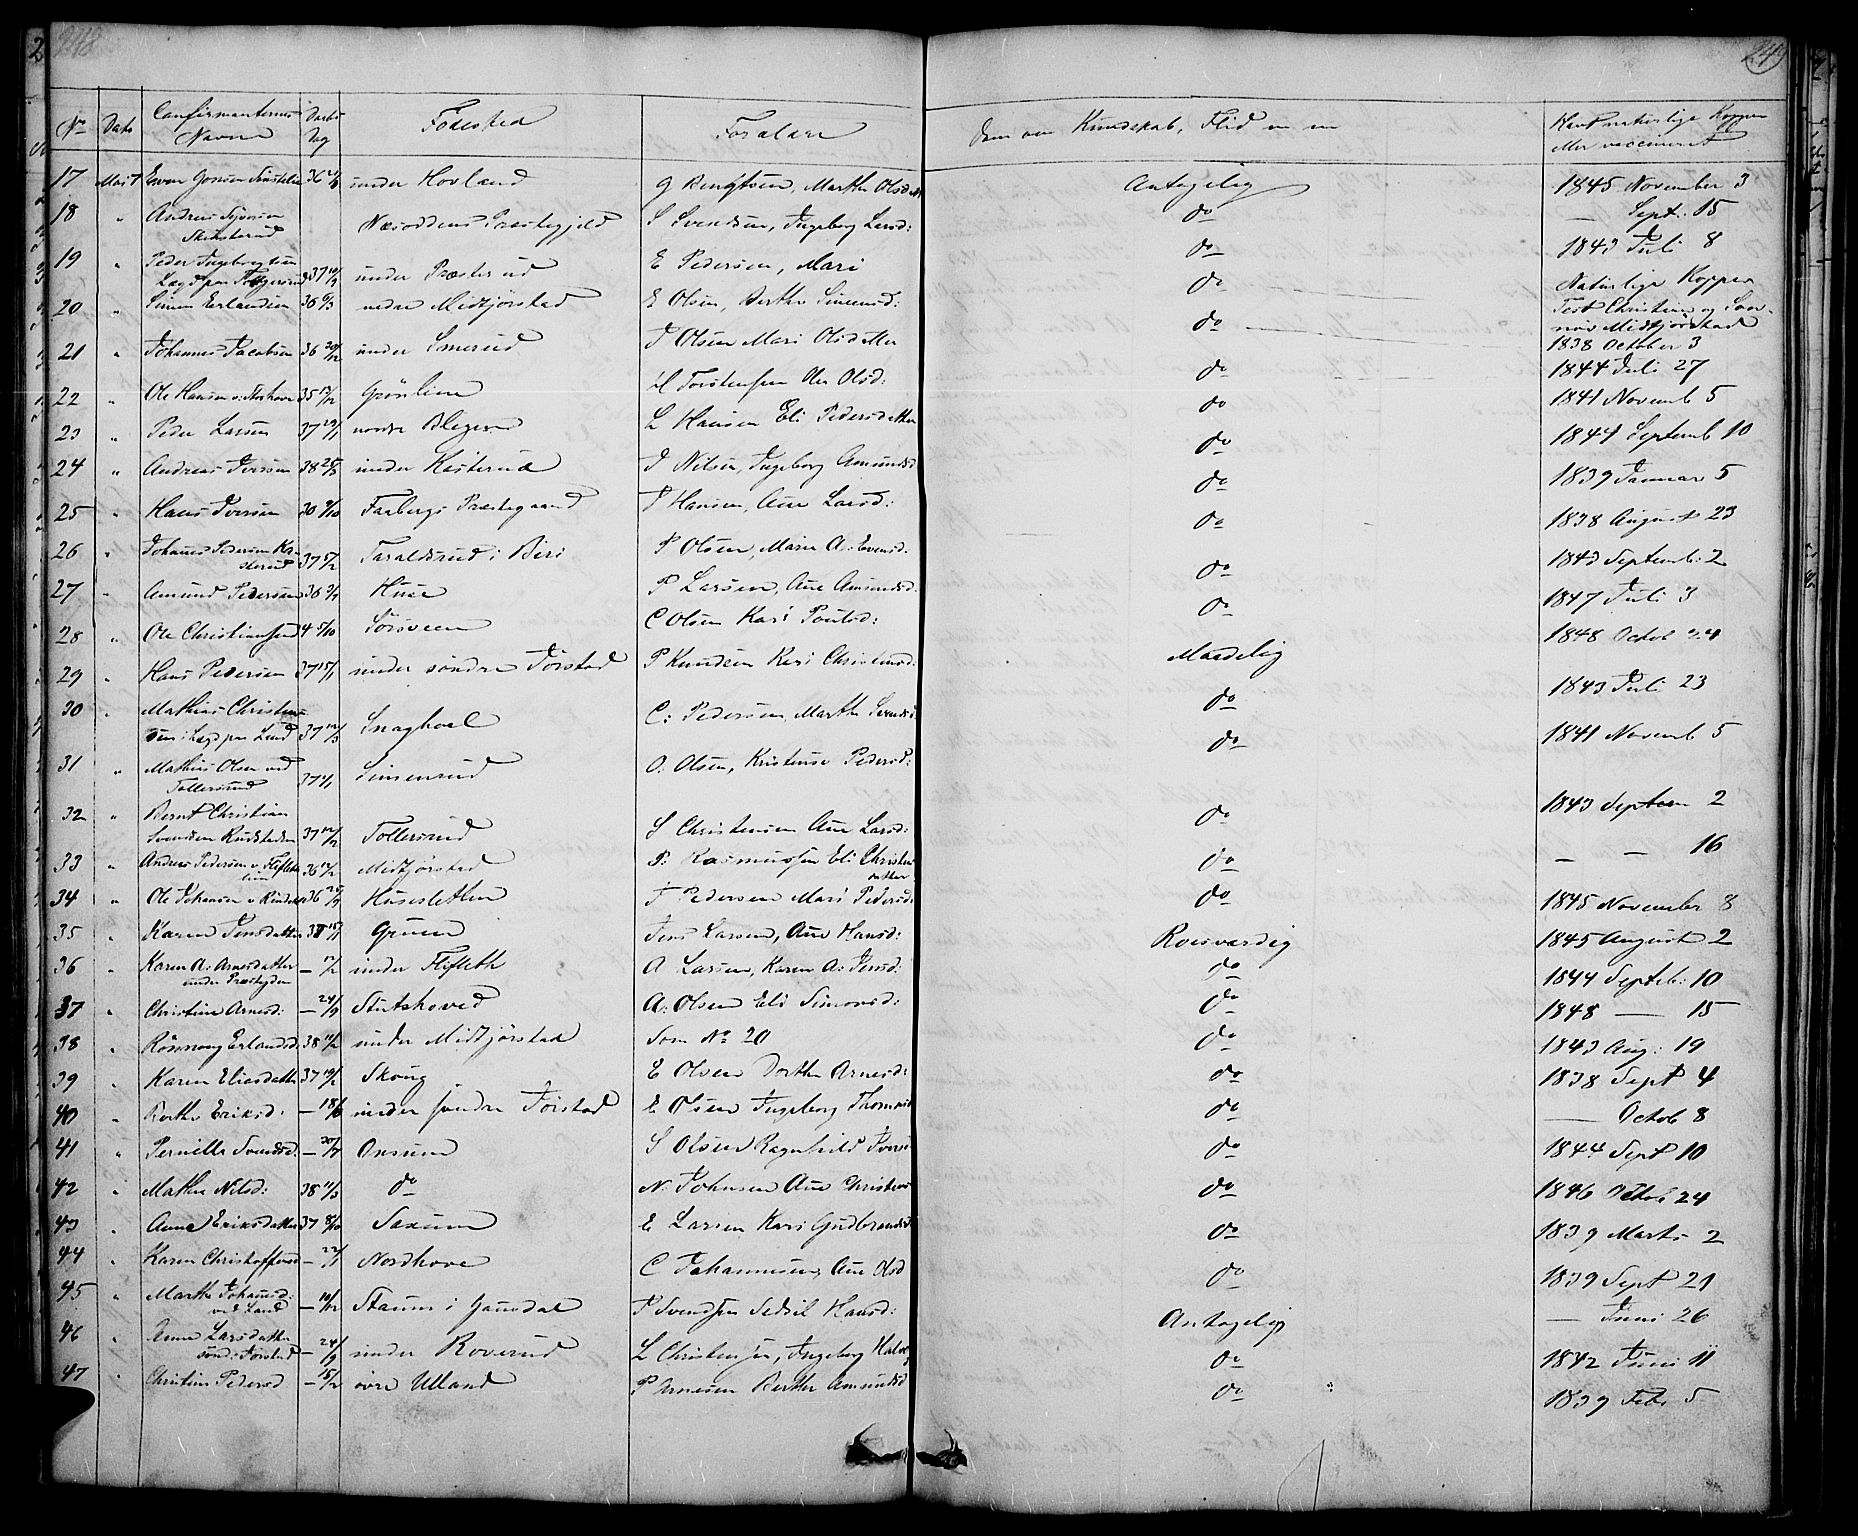 248 249
No Dato Confirmanternes Navne Daabs Dag Fødested Forældre Dom om Kundskab, Flid m m Havt naturlige Kopper eller vaccineret
17 36 under Hovland Marthe Olsdatter Antagelig 1845 November 3
18 " Andreas Næsoddens Præstegjeld S Svendsen, Ingeborg Larsd: do — Sept: 15
19 " Peder Ingebrigtsen 37 under Præsterud E Pedersen, Mari do 1843 Juli 8
20 " Simen Erlandsen 36 nedre Midtjørstad E Olsen, Berthe Simensd: do Naturlige Kopper
Test Christian og
Midtjørstad
21 " Johannes Jacobsen 36 20/12 under Smerud J Olsen Mari Olsdatter do 1838 October 3
22 " Ole Hansen v: Norhove 35 Grønlien H Torstensen Olsd: do 1844 Juli 27
23 " Peder Larsen 37 29/11 nordre L Hansen Eli Pedersdatter do 1841 Novemb 5
24 " Andreas Iversen 38 25/3 under Kasterud I Nilsen, Ingeborg Amundsd do 1844 Septemb 10
25 " Hans Iversen 30 9/10 Faabergs Præstegaard I Hansen, Ane Larsd: do 1839 Januar 5
26 " Johannes Pedersen Kasterud 37 Taraldsrud i Biri P Olsen, Maria A: Evensd: do 1838 August 23
27 " Amund Pedersen 36 Huse P Larsen, Ane Amundsd: do 1843 Septemb: 2
28 " Ole Christiansen 4 5/10 Sørsveen C Olsen Kari Poulsd: do 1847 Juli 3
29 " Hans Pedersen 37 15/1 under søndre Jørstad P Knudsen Kari Christensd: Maadelig 1848 Octob 24
30 " Mathias Christensen i Lægd paa Lund 37 12/3 Snaghoel C: Pedersen, Marthe Svendsd do 1843 Juli 23
31 " Mathias Olsen ved Tollersrud 37 Simensrud O: Olsen, Kristense Pedersd: do 1841 Novemb 5
32 " Bernt Christian Svendsen Rudstaden 37 12/2 Tollersrud S Christensen Ane Larsd: do 1843 Septem 2
33 " Andreas Pedersen v. Fliflethlien 36 Midtjørstad P: Rasmussen Eli Christensdatter do — — 16
34 " Ole Johansen v 36 Husesletten J Pedersen Mari Pedersd: do 1845 November 8
35 " Karen Jensdatter 15/1 Gruen Jens Larsen, Ane Hansd: Roesværdig 1845 August 2
36 " Karen A: Arnesdatter under — 12/2 under Flifleth A Larsen, Karen A: Jensd: do 1844 Septeb: 10
37 " Christine Arnesd: — 24/9 Stutshoved A: Olsen Eli Simonsd: do 1848 — 15
38 " Rønnoug Erlandsd. 38 11/2 under Midtjørstad Som No 20 do 1843 Aug: 19
39 " Karen Eliasdatter 37 19/2 Skoug E Olsen Dorthe Arnesd: do 1838 Sept 4
40 " Berthe Eriksd: — 18/6 under søndre Jørstad E Olsen Ingeborg Thomasd do — Octob 8
41 " Pernille Svendsd: — 30/7 Onsum S Olsen Ragnhild Iversd do 1844 Sept 10
42 " Mathea Nilsd: 38 11/3 do N: Johnsen Ane Christens do 1846 Octob 24
43 " Anne Eriksdatter 37 8/10 Saxum E Larsen Kari Gudbrandsd do 1839 Marts 2
44 " Karen Christoffersd — 22/1 Nordhove C Johannesen, Ane Olsd do 1839 Sept 21
45 " Marthe Johannesd: ved Lund — 10/12 Staum i Gausdal P Svendsen Sidsil Hansd: Antagelig — Juni 26
46 " Anne Larsdatter sønd: Jørstad — 24/9 under Roverud L Christensen, Ingeborg do 1842 Juni 11
47 " Christine Pedersd — 15/2 øvre Ulland P Arnesen Berthe Amundsd do 1839 Febr 5